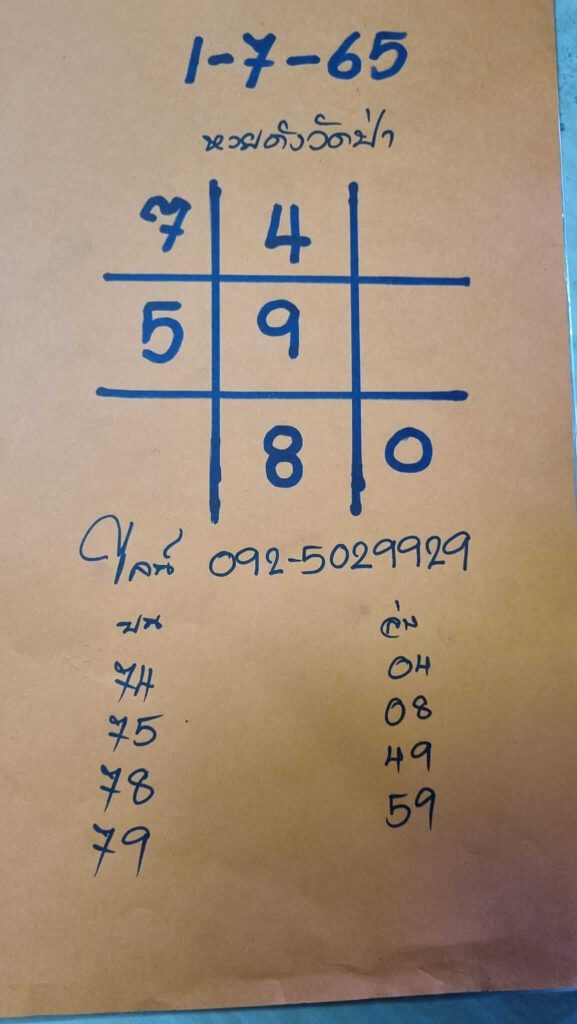 1-7-65
หวยดังวัดป่า
7 4
5 9
8 0
ไลน์ 092-5029929
บน ล่าง
74 04
75 08
78 49
79 59